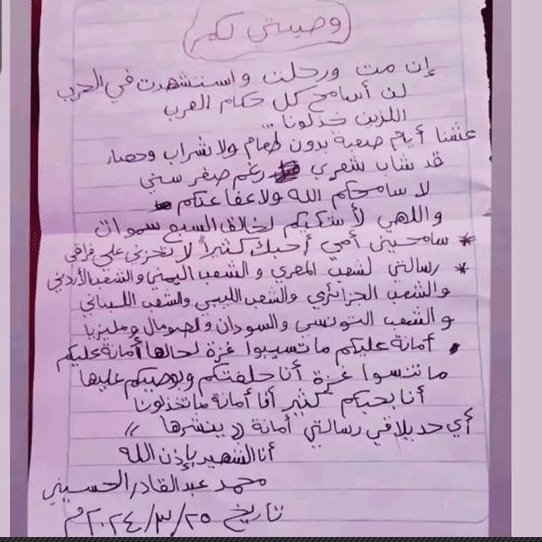 وصيتي لكم
إن مت ورحلت واستشهدت في الحرب
لن أسامح كل حكام العرب
اللزين خذلونا ..
عشنا أيام صعبة بدون طعام ولا شراب وحصار
قد شاب شعري رغم صغر سني
لا سامحكم الله ولا عفا عنكم
واللهي لأشكيكم لخالق السبع سموات
* سامحيني أمي أحبك كثيراً لا تحزني علي فراقي
* رسالتي لشعب المصري و الشعب اليمني والشعب الأردني
و الشعب الجزائري والشعب الليبي والشعب اللبناني
و الشعب التونسي والسودان والصومال وماليزيا
أمانة عليكم ما تسيبوا غزة لحالها أمانة عليكم
ما تنسوا غزة أنا حلفتكم وبوصيكم عليها
أنا بحبكم كثير أنا أمانة ما تخذلونا
أي حد يلاقي رسالتي أمانة (( ينشرها ))
أنا الشهيد بإذن الله
محمد عبد القادر الحسيني
تاريخ ٢٥/٣/٢٠٢٤م